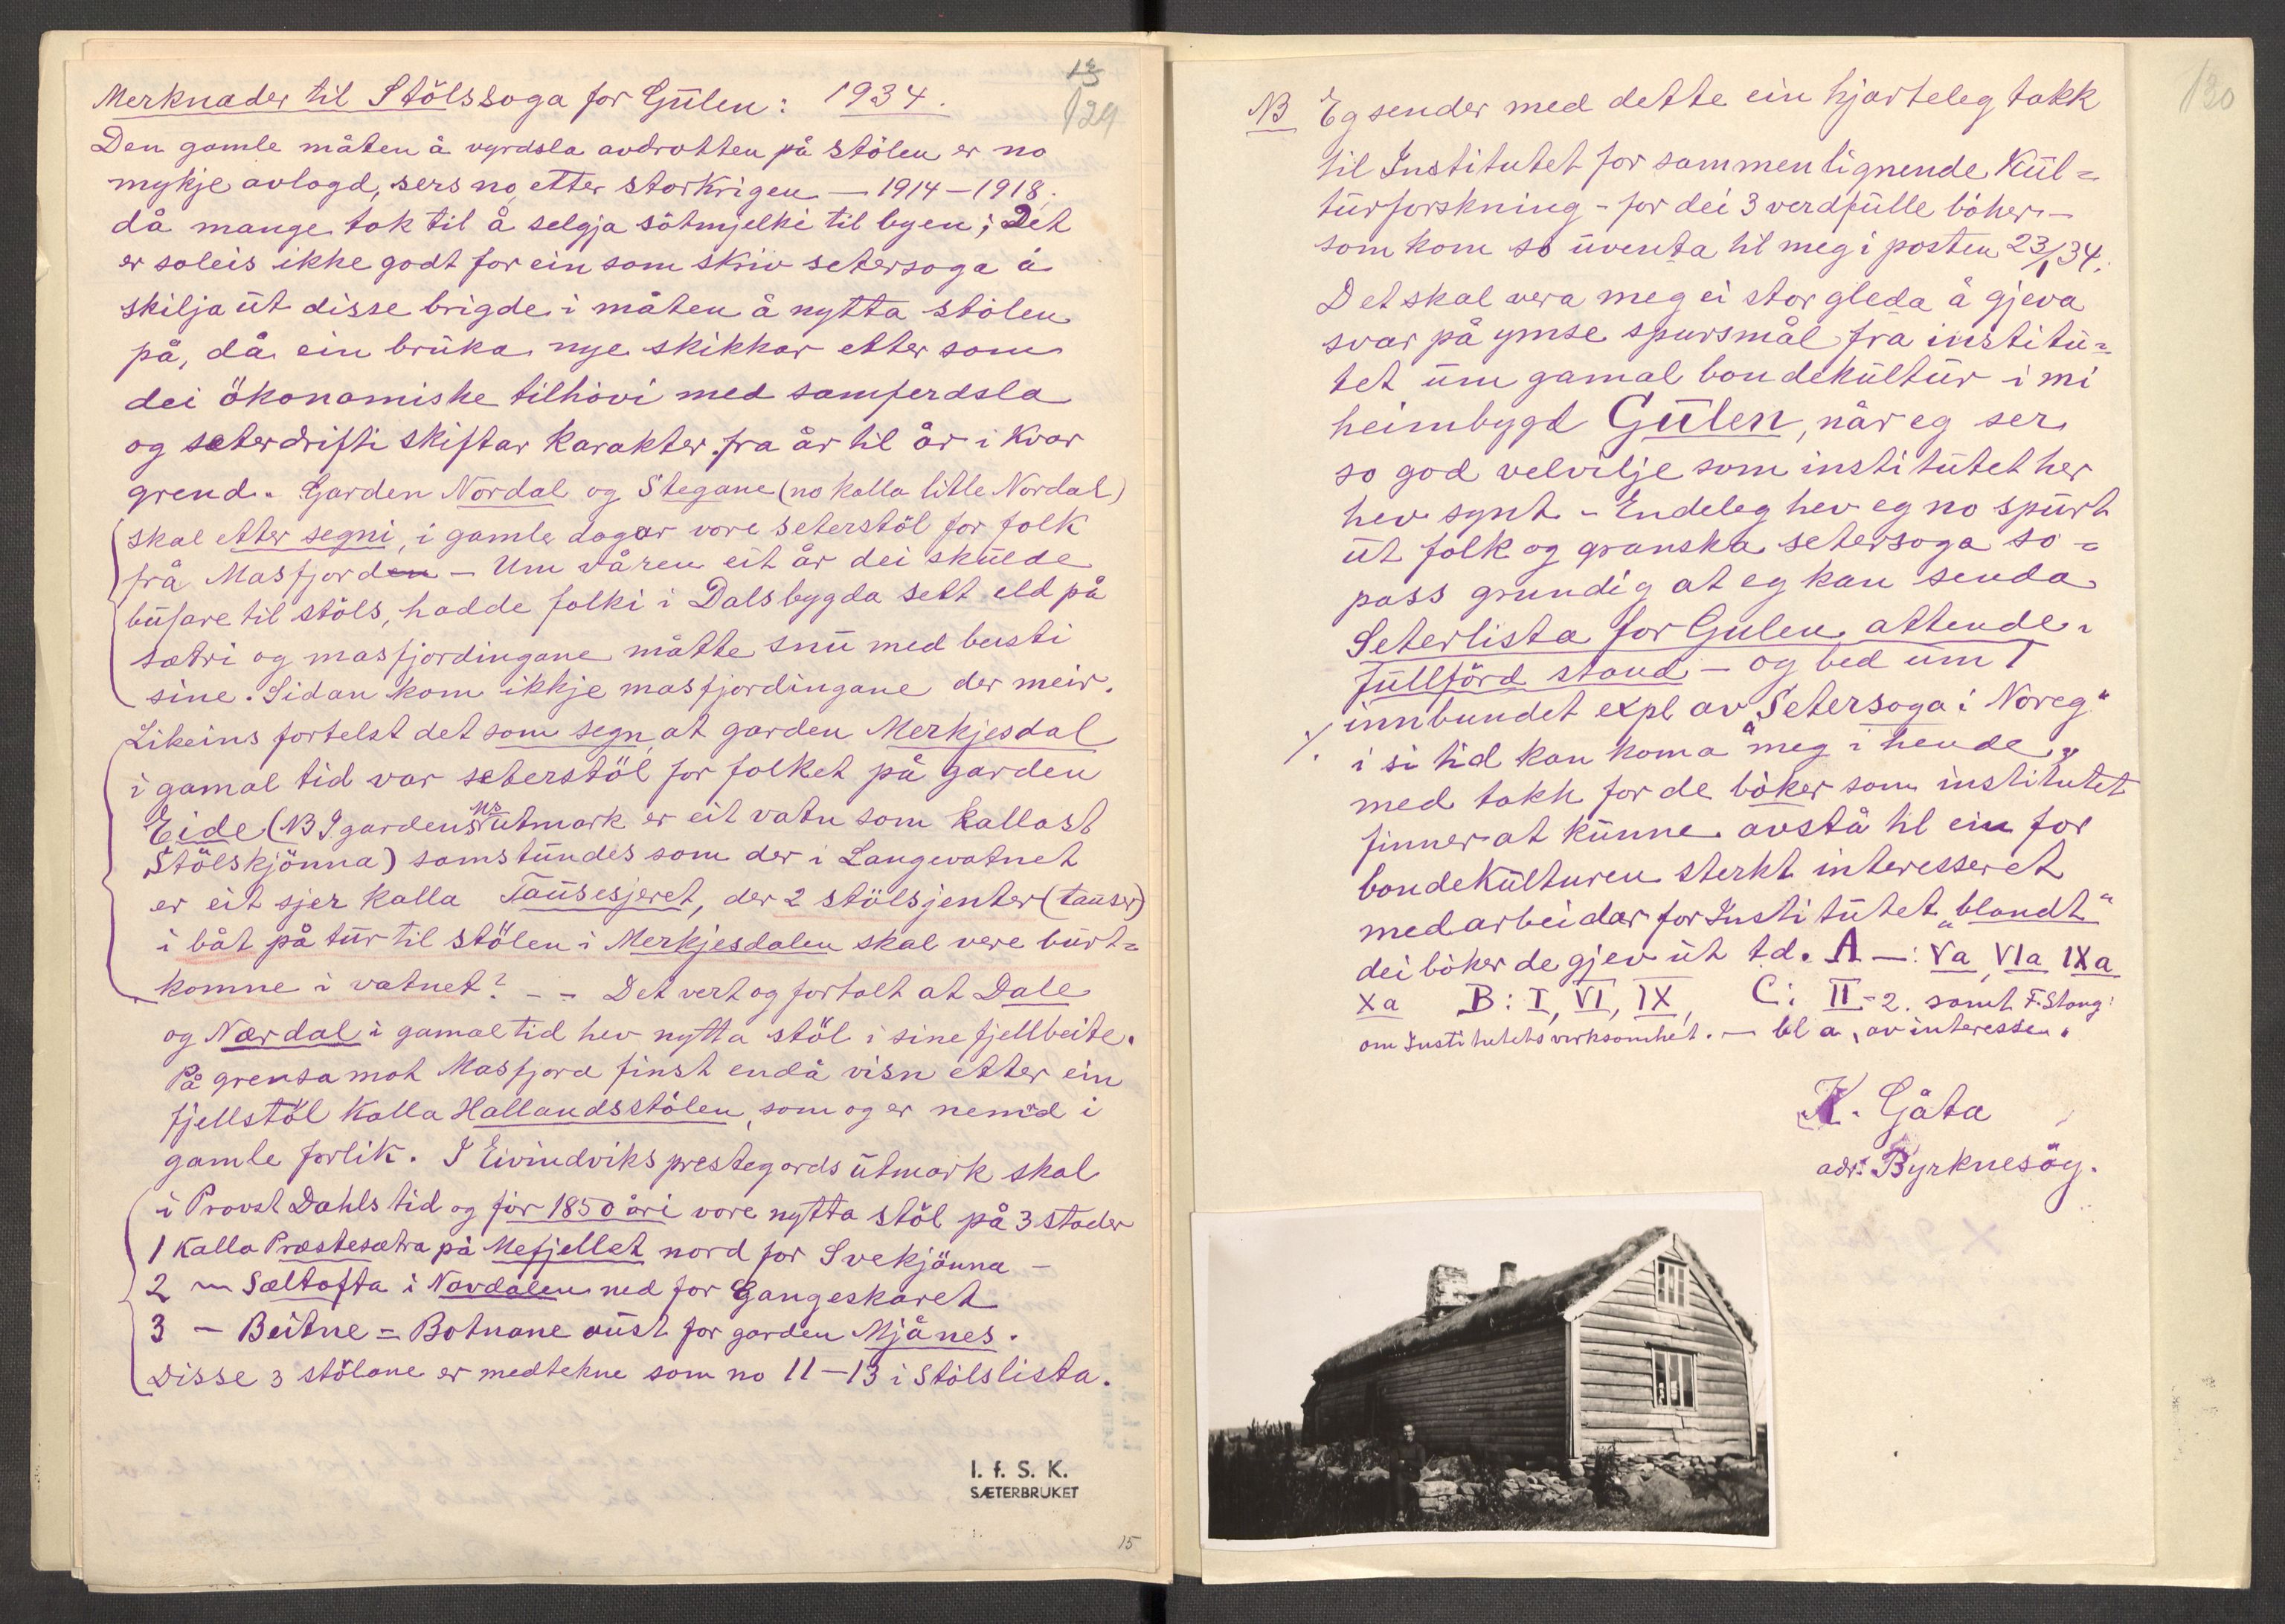 13
129
Merknader til Stölssoga for Gülen: 1934.
Den gamle måten å vyrdsla avdrotten på stölen er no
mykje avlagd, sers no etter storkrigen — 1914–1918,
då mange tok til å selgja sötmjelki til byen; Det
er soleis ikke godt for ein som skriv setersoga å
skilja üt disse brigde i måten å nytta stölen
på, då ein brüka nye skikkar etter som
dei ökonomiske tilhövi med samferdsla
og seterdrifti skiftar karakter fra år til år i kvar
grend. Garden Nordal og Stegane (no kalla litle Nordal)
skal etter segni, i gamle dagar vore seterstöl for folk
frå Masfjorden – Um våren eit år dei skülde
büfare til støls, hadde folki i Dalsbygda sett eld på
sætri og masfjordingane måtte snü med busti
sine. Sidan kom ikkje masfjordingane der meir.
Likeins fortelst det som segn, at garden Merkjesdal
i gamal tid var seterstöl for folket på garden
Eide (NB I gardens ütmark er eit vatn som kallast
Stölskjönna) samstundes som der i Langevatnet
er eit sjer kalla Taüsesjeret, der 2 stölsjenter (taüser)
i båt på tür til stölen i Merkjesdalen skal vere bürt=
komne i vatnet? – – Det vert og fortalt at Dale
og Nærdal i gamal tid hev nytta stöl i sine fjellbeite.
På grensa mot Masfjord finst endå visn etter ein
fjellstöl kalla Hallandsstölen, som og er nemnd i
gamle forlik. I Eivindviks prestegards ütmark skal
i Provst Dahls tid og för 1850 åri vore nytta stöl på 3 stader
1 kalla Præstesætra på Mefjellet nord for Svekjönna –
2 — Sæltofta i Navdalen ned for Gangeskaret
3 – Beitne = Botnane aüst for garden Mjånes.
Disse 3 stölane er medtekne som no 11–13 i Stölslista.
I. f. S. K.
SÆTERBRUKET
15
130
NB Eg sender med dette ein hjarteleg takk
til Institutet for sammenlignende Kül=
türforskning – for dei 3 verdfülle böker –
som kom so üventa til meg i posten 23/1 34.
Det skal vera meg ei stor gleda å gjeva
svar på ymse spursmål frå institü=
tet üm gamal bondekültür i mi
heimbygd Gülen, når eg ser
so god velvilje som institütet her
hev synt – Endeleg hev eg no spürt
üt folk og granska setersoga so=
pass grundig at eg kan senda
Seterlista for Gulen attende i
füllförd stand – og bed üm 1
innbundet expl av "Setersoga i Noreg"
i si tid kan koma meg i hende,
med takk for de böker som institutet
finner at künne avstå til ein for
bondekülturen sterkt interesseret
medarbeidar for Institütet "blandt"
dei böker de gjev üt td. A —: Va, VIa IXa
Xa B: I, VI, IX, C: II–2. samt F. Stang:
om Institutets virksomhet. — bl a, av interesse.
K. Gåta
adr: Byrknesöy.